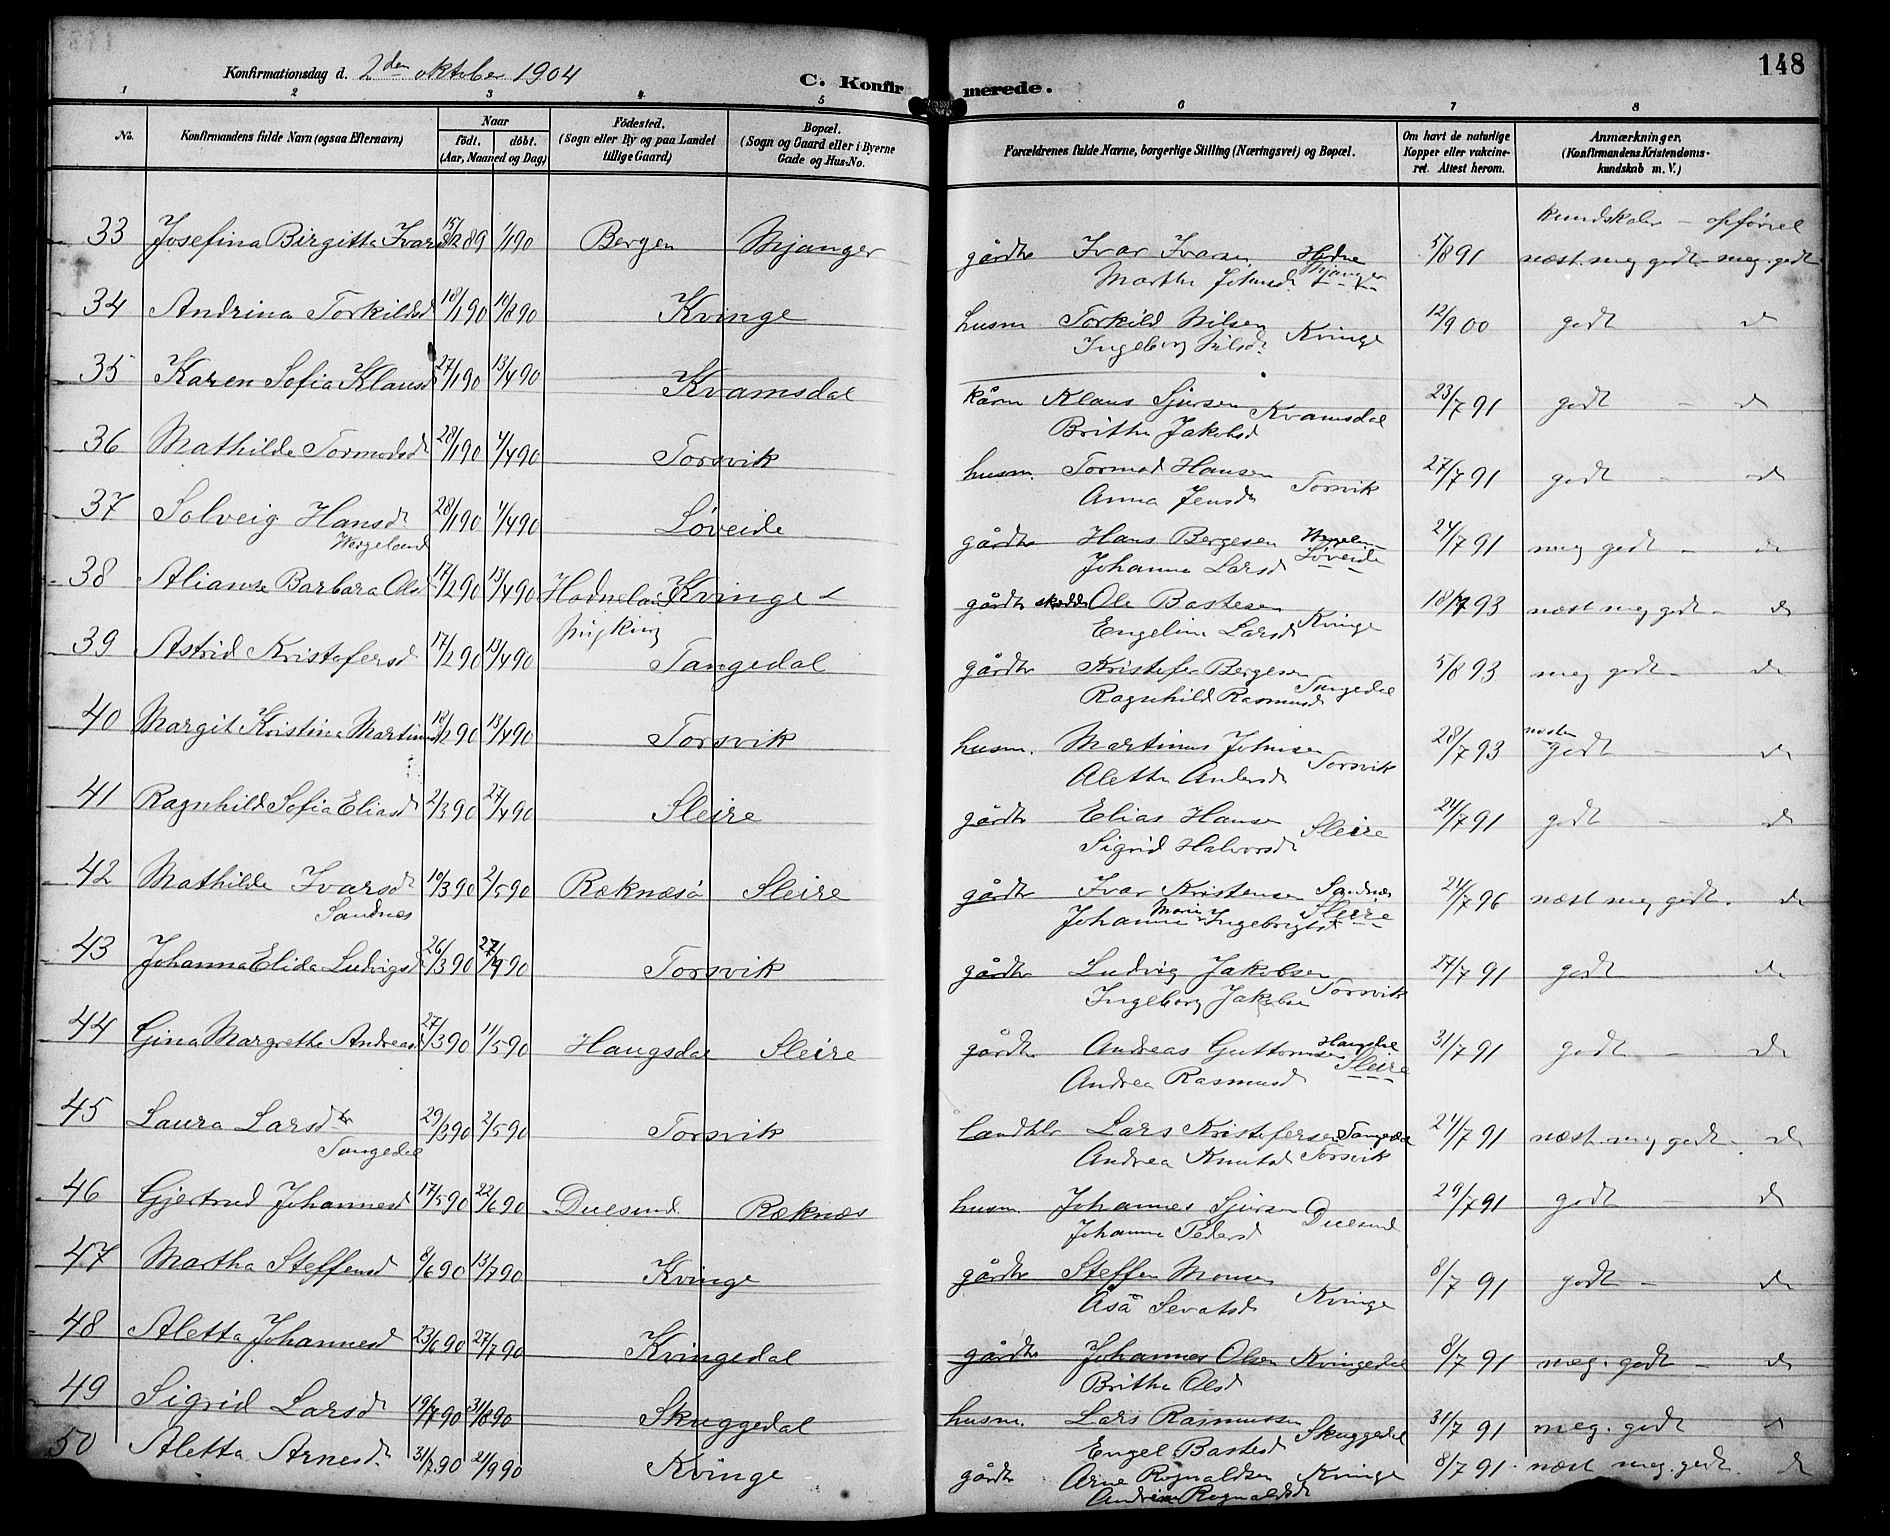 Konfirmationsdag d. 2den oktober 1904
C. Konfirmerede.
148
1 2 3 4 5 6 7 8
No.
Konfirmandens fulde Navn (ogsaa Efternavn)
Naar
født. døbt.
(Aar, Maaned og Dag)
Fødested.
(Sogn eller By og paa Landet
tillige Gaard)
Bopæl.
(Sogn og Gaard eller i Byerne
Gade og Hus-No.
Forældrenes fulde Navne, borgerlige Stilling (Næringsvei) og Bopæl.
Om havt de naturlige
Kopper eller vakcine-
ret. Attest herom.
Anmærkninger.
(Konfirmandens Kristendoms-
kundskab m. V.)
kundskaber - opførsel
33 Josefina Birgitta Ivarsd 15/12 89 1/1 90 Bergen Mjanger gårdbr Ivar Ivarsen Hodne 5/8 91 næst meg godt - meg. godt
Marthe Johnsd Mjanger
34 Andrina Torkildsd 18/1 90 10/8 90 Kvinge husm Torkild Nilsen Kvinge 12/9 00 godt do
Ingeborg Nilsd
35 Karen Sofia Klausd 27/1 90 13/4 90 Kvamsdal kårm Klaus Sjursen Kvamsdal 23/7 91 godt - do
Brithe Jakobsd
36 Mathilde Tormodsd 28/1 90 4/4 90 Torsvik husm. Tormod Hansen Torsvik 27/7 91 godt - do
Anna Jensd
37 Solveig Hansdt 28/1 90 4/4 90 Løveide gårdbr Hans Bergesen 24/7 91 meg godt - do
Wergeland Johanne Larsd Løveide
38 Alianse Barbara Olsd 17/2 90 13/4 90 Hodneland Kvinge gårdbr Ole Bastesen Kvinge 18/7 93 næst meg godt - do
Engeline Larsd
39 Astrid Kristofersd 17/2 90 13/4 90 Tangedal gårdbr Kristofer Bergesen Tangedal 5/8 93 meg godt - do
Ragnhild Rasmusd
40 Margit Kristine Martinusd 18/2 90 13/4 90 Torsvik husm. Martinus Johnsen Torsvik 28/7 93 næsten godt - do
Alette Andersd
41 Ragnhild Sofia Eliasd 2/3 90 27/4 90 Sleire gårdbr Elias Hansen Sleire 24/7 91 godt - do
Sigrid Halvorsd
42 Mathilde Ivarsdt 10/3 90 2/5 90 Røknæsø Sleire gårdbr Ivar Kristensen Sandnæs 24/7 96 næst meg godt. do
Sandnes Johanne Marie Ingebrigtsd Sleire
43 Johanna Elida Ludvigsd 26/3 90 27/4 90 Torsvik gårdbr Ludvig Jakobsen Torsvik 27/7 91 godt - do
Ingeborg Jakobsen
44 Gina Margrethe Andreasd 27/3 90 11/5 90 Haugsdal Sleire gårdbr Andreas Guttormsen Haugsdal 31/7 91 godt - do
Andrea Rasmusd Sleire
45 Laura Larsdtr 29/3 90 2/5 90 Torsvik landhlr Lars Kristofersen Tangedal 24/7 91 næst meg godt - do
Tangedal Andrea Knutsd Torsvik
46 Gjertrud Johannesd 17/5 90 22/6 90 Duesund Røknæs husm Johannes Sjursen Duesund 29/7 91 godt - do
Johanne Pedersd
47 Martha Steffensd 8/6 90 13/7 90 Kvinge gårdbr Steffen Monsen Kvinge 8/7 91 godt - do
Åsa Sevatsd
48 Aletta Johannesd 23/6 90 27/7 90 Kvingedal gårdbr Johannes Olsen Kvingedal 8/7 91 meg. godt - do
Brithe Olsd
49 Sigrid Larsdt 19/7 90 31/8 90 Skuggedal husm. Lars Rasmussen Skuggedal 31/7 91 meg. godt do
Engel Bastesd
50 Aletta Arnesdt 31/7 90 21/9 90 Kvinge gårdbr Arne Rognaldsen Kvinge 8/7 91 næst meg. godt. do
Andrine Rognaldsd